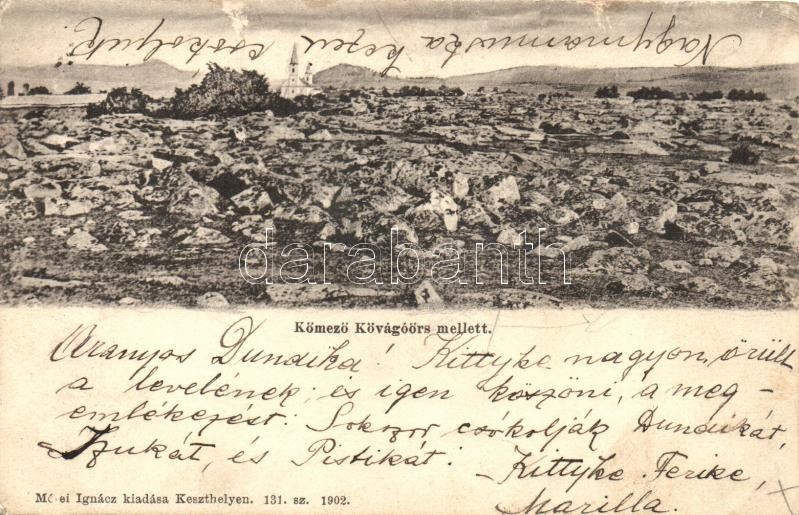 Nagymamuska kezeit csókoljuk
darabanth
Kőmező Kővágóörs mellett.
Aranyos Dundika! Kittyke nagyon, örült
a levelének; és igen köszöni, a meg-
emlékezést: Sokszor csókolják Dundikát,
Izukát, és Pistikát: - Kittyke Ferike,
Marilla.
Ignácz kiadása Keszthelyen. 131. sz. 1902.